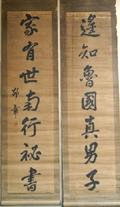 遥知魯國真男子
家有世南行祕書